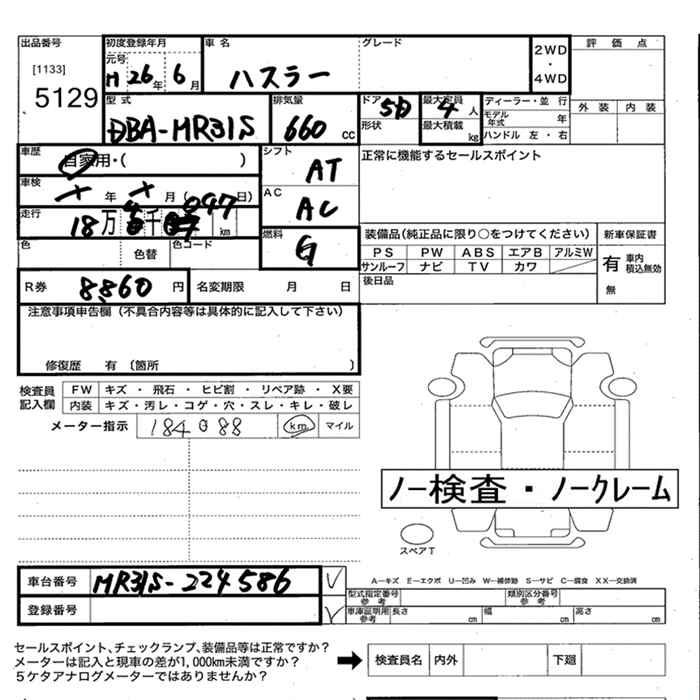 出品番号 初度登録年月 車名 グレード 2WD 評価点
[1133] 元号 H 26年 6月 ハスラー ・
5129 4WD
型式 排気量 ドア 5D 最大定員 4人 ディーラー・並行 外装 内装
DBA-MR31S 660cc 形状 最大積載 kg モデル年式 年
ハンドル 左・右
車歴 自家用・( ) シフト AT 正常に機能するセールスポイント
車検 年 月( 日) AC AC
走行 18万 千 km
色 色替 色コード 燃料 G 装備品(純正品に限り○をつけてください) 新車保証書
PS PW ABS エアB アルミW 有 車内積込無効
サンルーフ ナビ TV カワ
R券 8860円 名変期限 月 日 後日品 無
注意事項申告欄(不具合内容等は具体的に記入して下さい)
修復歴 有 〔箇所 〕
検査員 FW キズ・飛石・ヒビ割・リペア跡・X要
記入欄 内装 キズ・汚レ・コゲ・穴・スレ・キレ・破レ
メーター指示 184088 km マイル
ノー検査・ノークレーム
スペアT
車台番号 MR31S-224586 ✓ A―キズ E―エクボ U―凹み W―補修跡 S―サビ C―腐食 XX―交換済
型式指定番号参考 類別区分番号参考
登録番号 ✓ 車庫証明用参考 長さ cm 幅 cm 高さ cm
セールスポイント、チェックランプ、装備品等は正常ですか?
メーターは記入と現車の差が1,000km未満ですか? 検査員名 内外 下廻
5ケタアナログメーターではありませんか?